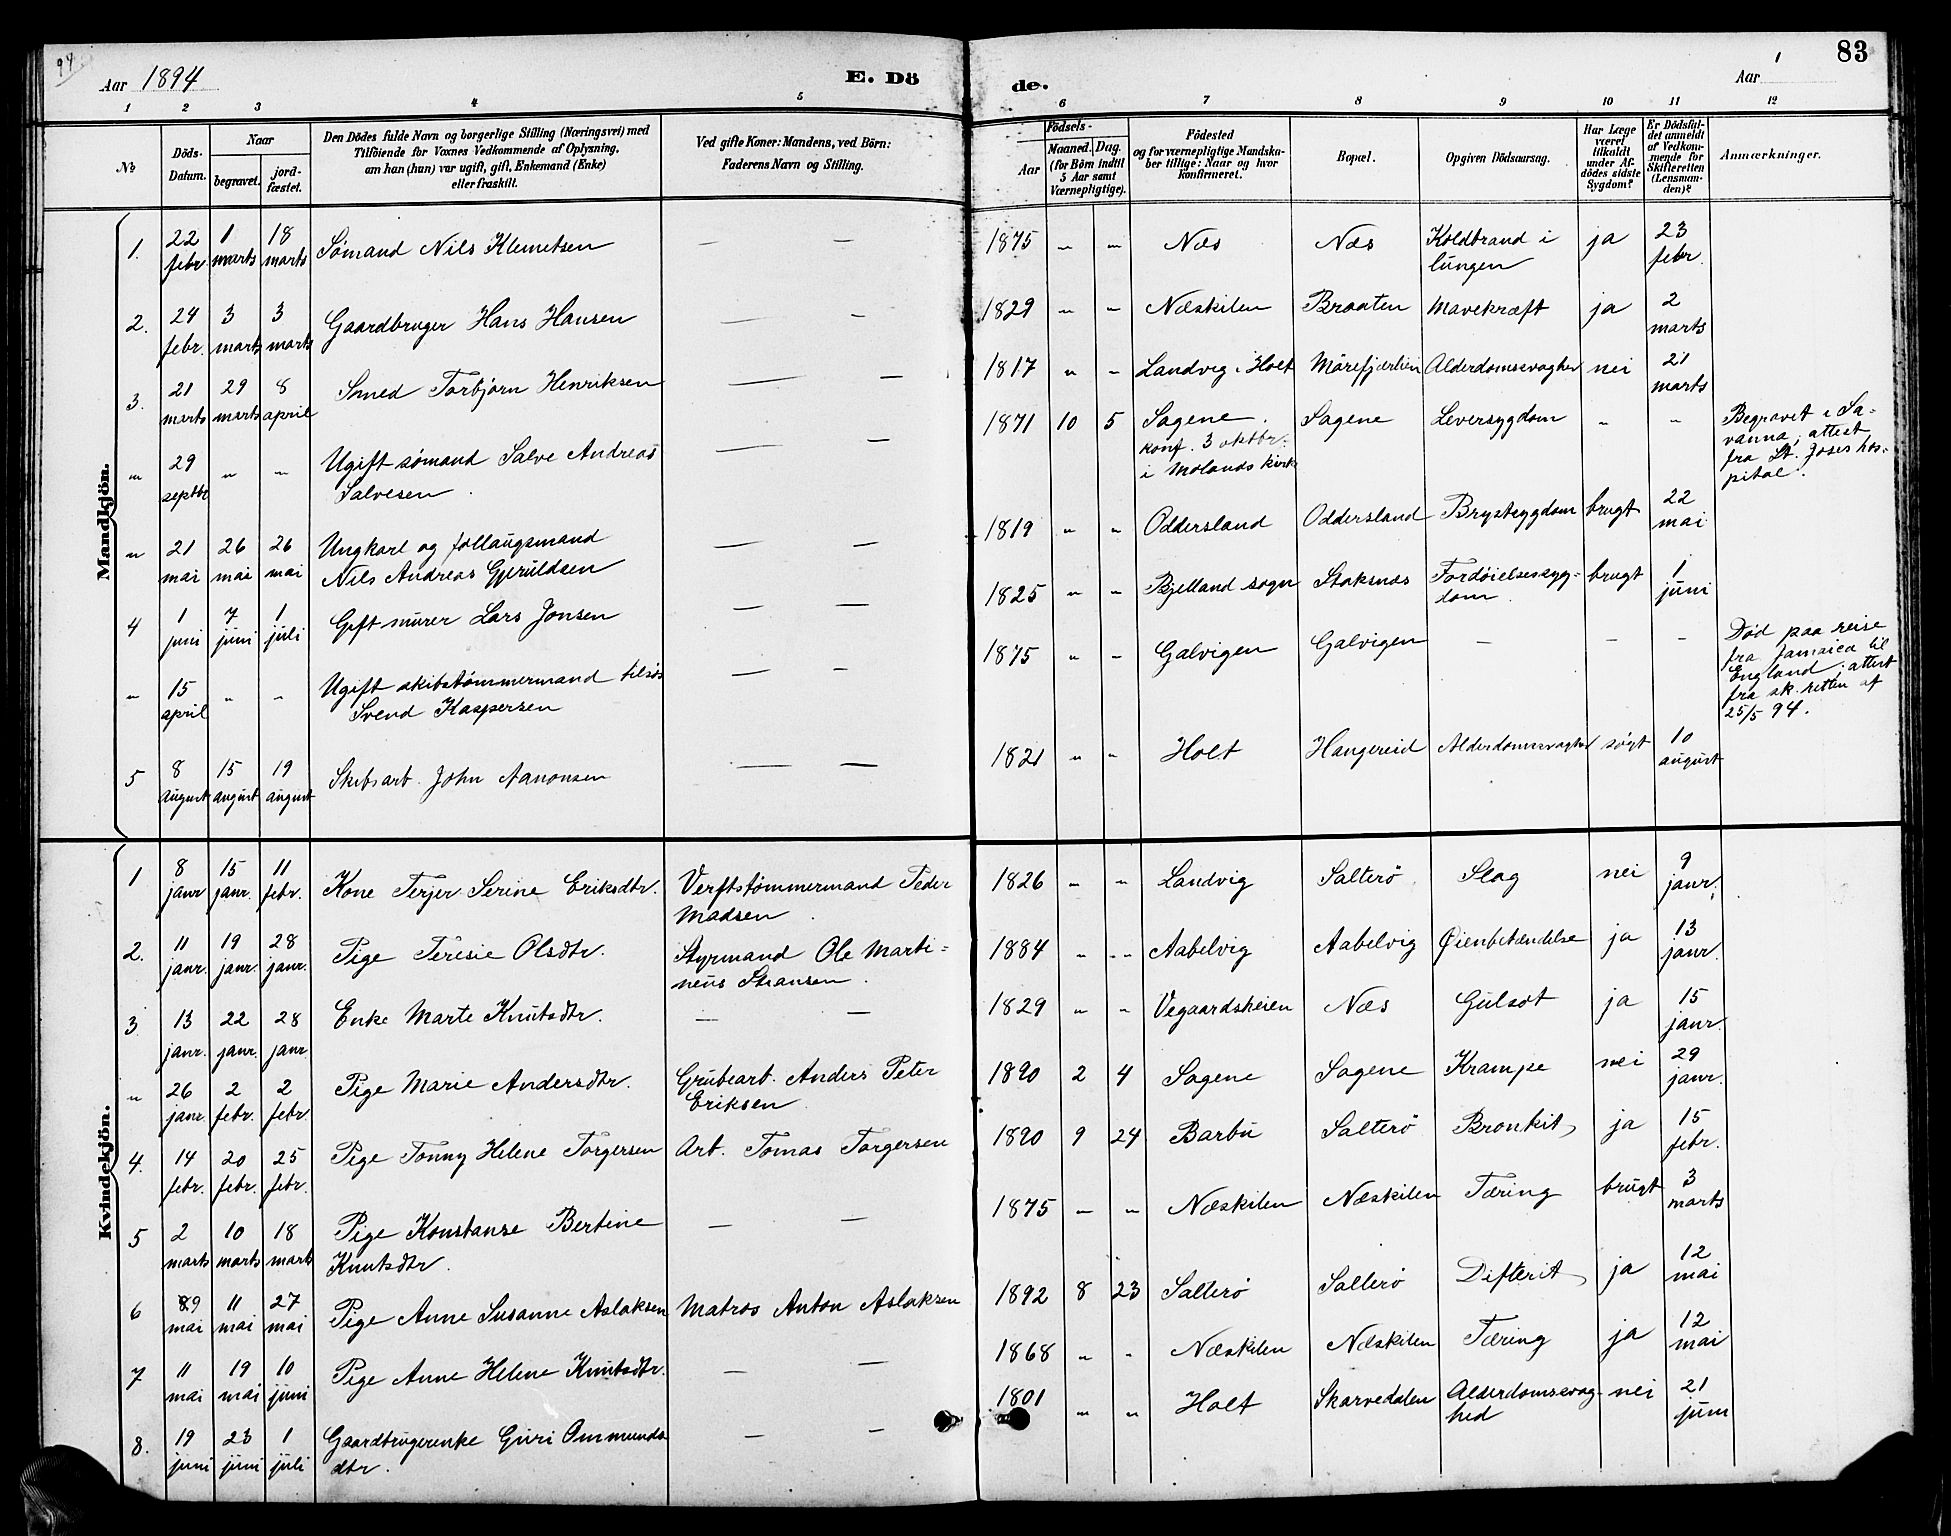 94
Aar 1894
E. Dö
de.
Aar 1
83
1 2 3 4 5
6 7 8 9 10 11 12
No
Döds-
Datum.
Naar
begravet.
jord-
fæstet.
Den Dödes fulde Navn og borgerlige Stilling (Næringsvei) med
Tilföiende for Voxnes Vedkommende af Oplysning,
om han (hun) var ugift, gift, Enkemand (Enke)
eller fraskilt.
Ved gifte Koner: Mandens, ved Börn:
Faderens Navn og Stilling.
Födsels-
Aar
Maaned. Dag.
(for Börn indtil
5 Aar samt
Værnepligtige).
Födested
og for værnepligtige Mandska-
ber tillige: Naar og hvor
konfirmeret.
Bopæl.
Opgiven Dödsaarsag.
Har Læge
været
tilkaldt
under Af-
dödes sidste
Sygdom?
Er Dödsfal-
det anmeldt
af Vedkom-
mende for
Skifteretten
(Lensman-
den)?
Anmærkninger.
Mandkjön.
1. 22 febr. 1 marts 18 marts Sømand Nils Klemetsen — — 1875 " " Næs Næs Koldbrand i lungen ja 23 febr.
2. 24 febr. 3 marts 3 marts Gaardbruger Hans Hansen — — 1829 " " Næskilen Braaten Mavekræft ja 2 marts
3. 21 marts 29 marts 8 april Smed Torbjørn Henriksen — — 1817 " " Landvig i Holt Mörefjærlien Alderdomssvaghed nei 21 marts
" 29 septbr " " Ugift sømand Salve Andreas Salvesen. — — 1871 10 5 Sagene. konf. 3 oktbr. i Molands kirke Sagene Leversygdom " " Begravet i Sa-
vanna; attest
fra St. Joses hos-
pital.
" 21 mai 26 mai 26 mai Ungkarl og follaugsmand Nils Andreas Gjeruldsen — — 1819 " " Oddersland Oddersland Brystsygdom brugt 22 mai
4 1 juni 7 juni 1 juli Gift murer Lars Jonsen — — 1825 " " Bjelland sogn Staksnæs Fordøielsessyg-
dom. brugt 1 juni
" 15 april " " Ugift skibstømmermand tilsøs Svend Kaspersen — — 1875 " " Galvigen Galvigen — — — Død paa reise
fra Jamaica til
England; attest
fra sk. retten af
25/5 94.
5 8 august 15 august 19 august Skibsarb. John Aanonsen — — 1821 " " Holt Hangereid Alderdomssvaghed søgt 10 august
Kvindekjön.
1 8 janr 15 janr. 11 febr. Kone Terjer Serine Eriksdtr. Verftstømmermand Peder Madsen. 1826 " " Landvig Salterö Slag nei 9 janr.
2. 11 janr. 19 janr. 28 janr. Pige Teresie Olsdtr. Styrmand Ole Marti-
neus Stiansen. 1884 " " Aabelvig Aabelvig Øienbetændelse ja 13 janr.
3. 13 janr. 22 janr. 28 janr. Enke Marte Knutsdtr. — — 1829 " " Vegaardsheien Næs Gulsot ja 15 janr.
" 26 janr. 2 febr. 2 febr. Pige Marie Andersdtr. Grubearb. Anders Peter Eriksen. 1890 2 4 Sagene Sagene Krampe nei 29 janr.
4. 14 febr. 20 febr. 25 febr. Pige Tonny Helene Torgersen Arb. Tomas Torgersen 1890 9 24 Barbu Salterö Bronkit ja 15 febr.
5 2 marts 10 marts 18 marts Pige Konstanse Bertine Knutsdtr. — — 1875 " " Næskilen Næskilen Tæring brugt 3 marts
6 9 mai 11 mai 27 mai Pige Anne Susanne Aslaksen Matros Anton Aslaksen 1892 8 23 Salterö Salterö Difterit ja 12 mai
7 11 mai 19 mai 10 juni Pige Anne Helene Knutsdtr. — — 1868 " " Næskilen Næskilen Tæring ja 12 mai
8. 19 juni 23 juni 1 juli Gaardbrugerenke Guri Ommunds-
dtr. — — 1801 " " Holt Skarvedalen Alderdomssvag-
hed nei 21 juni